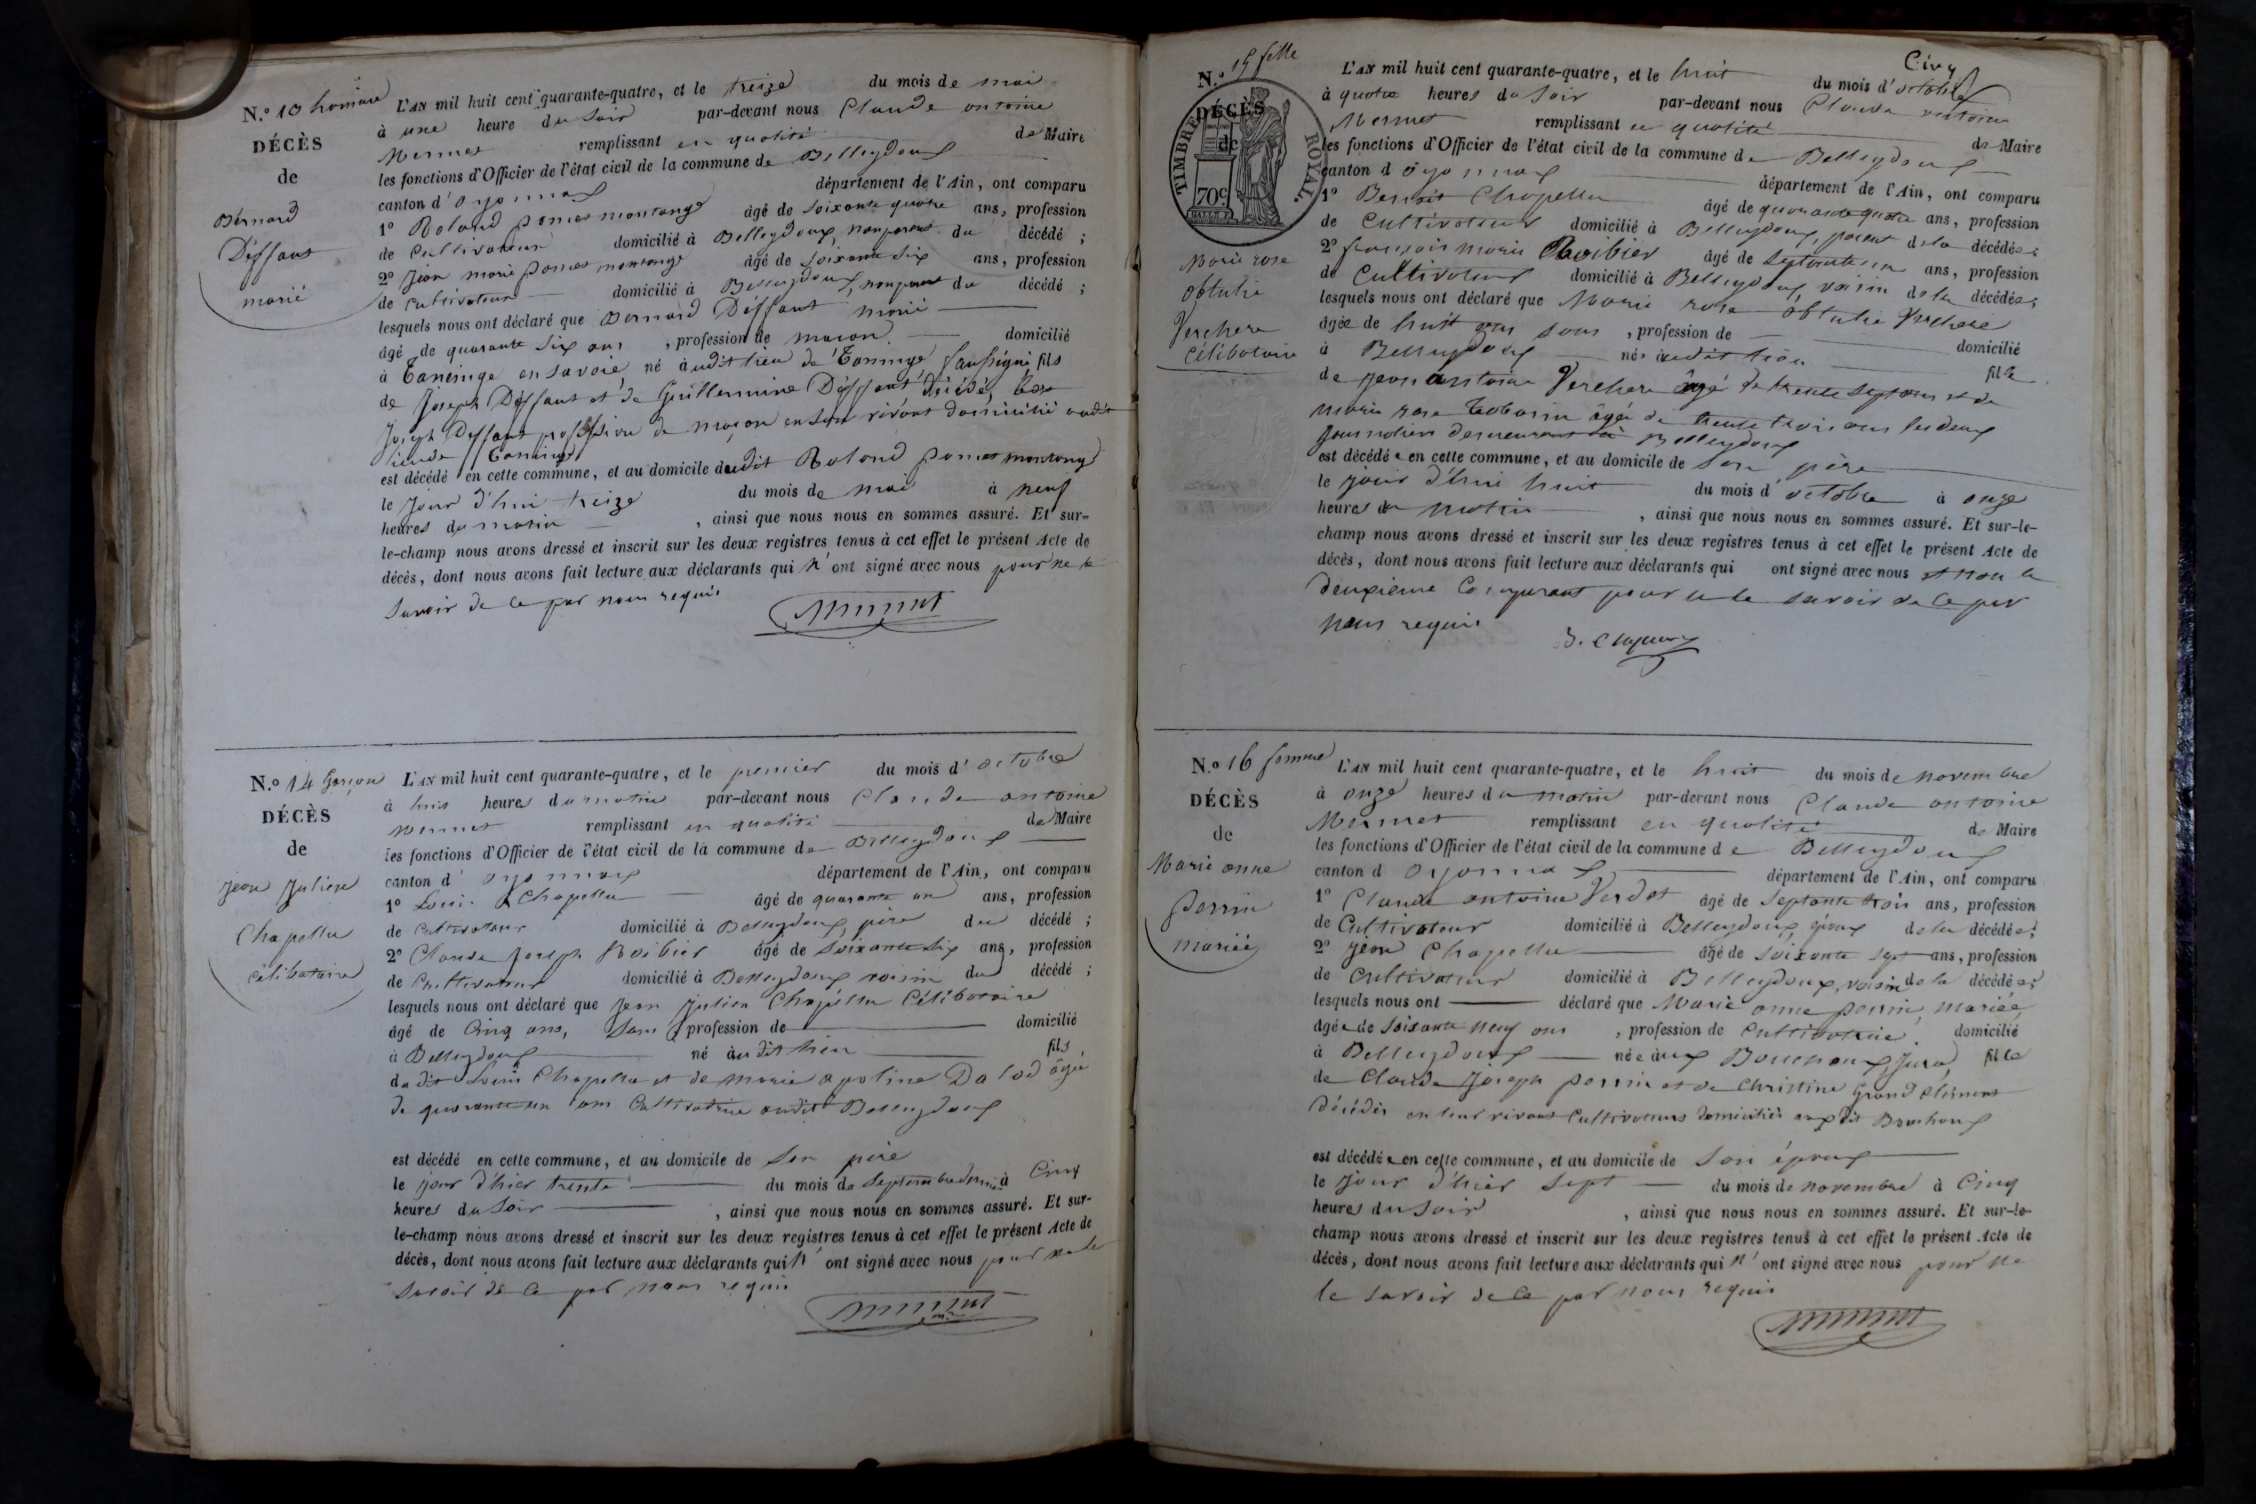 N.º 10 homme
DÉCÈS
de
Bernard
Déffaut
marié
L'AN mil huit cent quarante-quatre, et le treize du mois de mai
à une heure du soir par-devant nous Claude antoine
Mermet remplissant en qualité de Maire
les fonctions d'Officier de l'état civil de la commune de Belleydoux
canton d'oyonnax département de l'Ain, ont comparu
1º Roland poncet montange âgé de soixante quatre ans, profession
de cultivateur domicilié à Belleydoux, non parent du décédé ;
2º Jean marie poncet montange âgé de soixante six ans, profession
de cultivateur domicilié à Belleydoux, non parent du décédé ;
lesquels nous ont déclaré que Bernard Déffaut marié
âgé de quarante six ans, profession de maçon domicilié
à Taninge en savoie né audit lieu de Taninge faussigni fils
de Joseph Déffaut et de Guillermine Déffaut décédé,
Joseph Deffaut profession de maçon en son vivant domicilié audit
lieu de Taninge
est décédé en cette commune, et au domicile dudit Roland poncet montange
le jour d'hui treize du mois de mai à neuf
heures du matin, ainsi que nous nous en sommes assuré. Et sur-
le-champ nous avons dressé et inscrit sur les deux registres tenus à cet effet le présent Acte de
décès, dont nous avons fait lecture aux déclarants qui n'ont signé avec nous pour ne le
savoir de ce par nous requis
Mermet
N.º 14 garçon
DÉCÈS
de
jean Julien
Chapellu
célibataire
L'AN mil huit cent quarante-quatre, et le premier du mois d'octobre
à huit heures du matin par-devant nous Claude antoine
Mermet remplissant en qualité de Maire
les fonctions d'Officier de l'état civil de la commune de Belleydoux
canton d'oyonnax département de l'Ain, ont comparu
1º Louis Chapellu âgé de quarante un ans, profession
de cultivateur domicilié à Belleydoux, père du décédé ;
2º Claude Joseph Roibier âgé de soixante six ans, profession
de cultivateur domicilié à Belleydoux voisin du décédé ;
lesquels nous ont déclaré que jean Julien Chapellu Célibataire
âgé de Cinq ans, sans profession de domicilié
à Belleydoux né audit lieu fils
du dit Louis Chapellu et de marie apoline Dalod âgée
de quarante un ans Cultivatrice audit Belleydoux
est décédé en cette commune, et au domicile de son père
le jour d'hier trente du mois de septembre dernier à Cinq
heures du soir, ainsi que nous nous en sommes assuré. Et sur-
le-champ nous avons dressé et inscrit sur les deux registres tenus à cet effet le présent Acte de
décès, dont nous avons fait lecture aux déclarants qui n'ont signé avec nous pour ne le
savoir de ce par nous requis
Mermet
Cinq
N.º 15 fille
DÉCÈS
de
TIMBRE ROYAL
70c
Marie rose
obtulie
Verchere
Célibataire
L'AN mil huit cent quarante-quatre, et le huit du mois d'octobre
à quatre heures du soir par-devant nous Claude antoine
Mermet remplissant en qualité de Maire
les fonctions d'Officier de l'état civil de la commune de Belleydoux
canton d'oyonnax département de l'Ain, ont comparu
1º Benoit Chapellu âgé de quarante quatre ans, profession
de Cultivateur domicilié à Belleydoux, parent de la décédée ;
2º françois marie Roibier âgé de ans, profession
de Cultivateur domicilié à Belleydoux, voisin de la décédée ;
lesquels nous ont déclaré que Marie rose obtulie Verchere
âgée de huit ans sans, profession de domicilié
à Belleydoux née audit lieu fille
de jean antoine Verchere âgé de trente sept ans et de
marie rose âgée de trente trois ans les deux
journaliers demeurant à Belleydoux
est décédée en cette commune, et au domicile de son père
le jour d'hui huit du mois d'octobre à onze
heures du matin, ainsi que nous nous en sommes assuré. Et sur-le-
champ nous avons dressé et inscrit sur les deux registres tenus à cet effet le présent Acte de
décès, dont nous avons fait lecture aux déclarants qui ont signé avec nous et non le
deuxième Comparant pour ne le savoir de ce par
nous requis
N.º 16 femme
DÉCÈS
de
Marie anne
perrin
mariée
L'AN mil huit cent quarante-quatre, et le huit du mois de novembre
à onze heures du matin par-devant nous Claude antoine
Mermet remplissant en qualité de Maire
les fonctions d'Officier de l'état civil de la commune de Belleydoux
canton d oyonnax département de l'Ain, ont comparu
1º Claude antoine Verdet âgé de septante trois ans, profession
de Cultivateur domicilié à Belleydoux, époux de la décédée ;
2º jean Chapellu âgé de soixante sept ans, profession
de Cultivateur domicilié à Belleydoux, voisin de la décédée ;
lesquels nous ont déclaré que Marie anne perrin, mariée,
âgée de soixante neuf ans, profession de Cultivatrice domicilié
à Belleydoux née aux Bouchoux, Jura, fille
de Claude Joseph perrin et de Christine grand Clément
décédés en leur vivant Cultivateurs domiciliés aux dit Bouchoux
est décédée en cette commune, et au domicile de son époux
le jour d'hier sept du mois de novembre à Cinq
heures du soir, ainsi que nous nous en sommes assuré. Et sur-le-
champ nous avons dressé et inscrit sur les deux registres tenus à cet effet le présent Acte de
décès, dont nous avons fait lecture aux déclarants qui n'ont signé avec nous pour ne
le savoir de ce par nous requis
Mermet